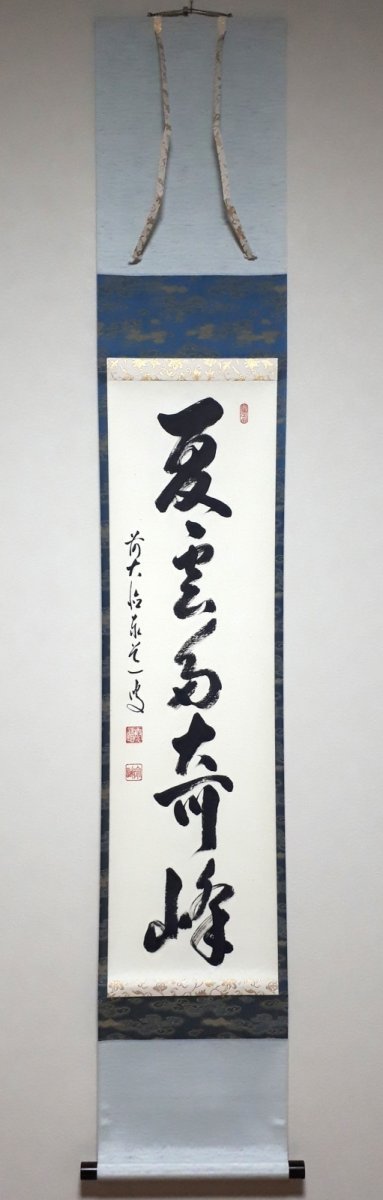 夏雲多奇峰
前大徳